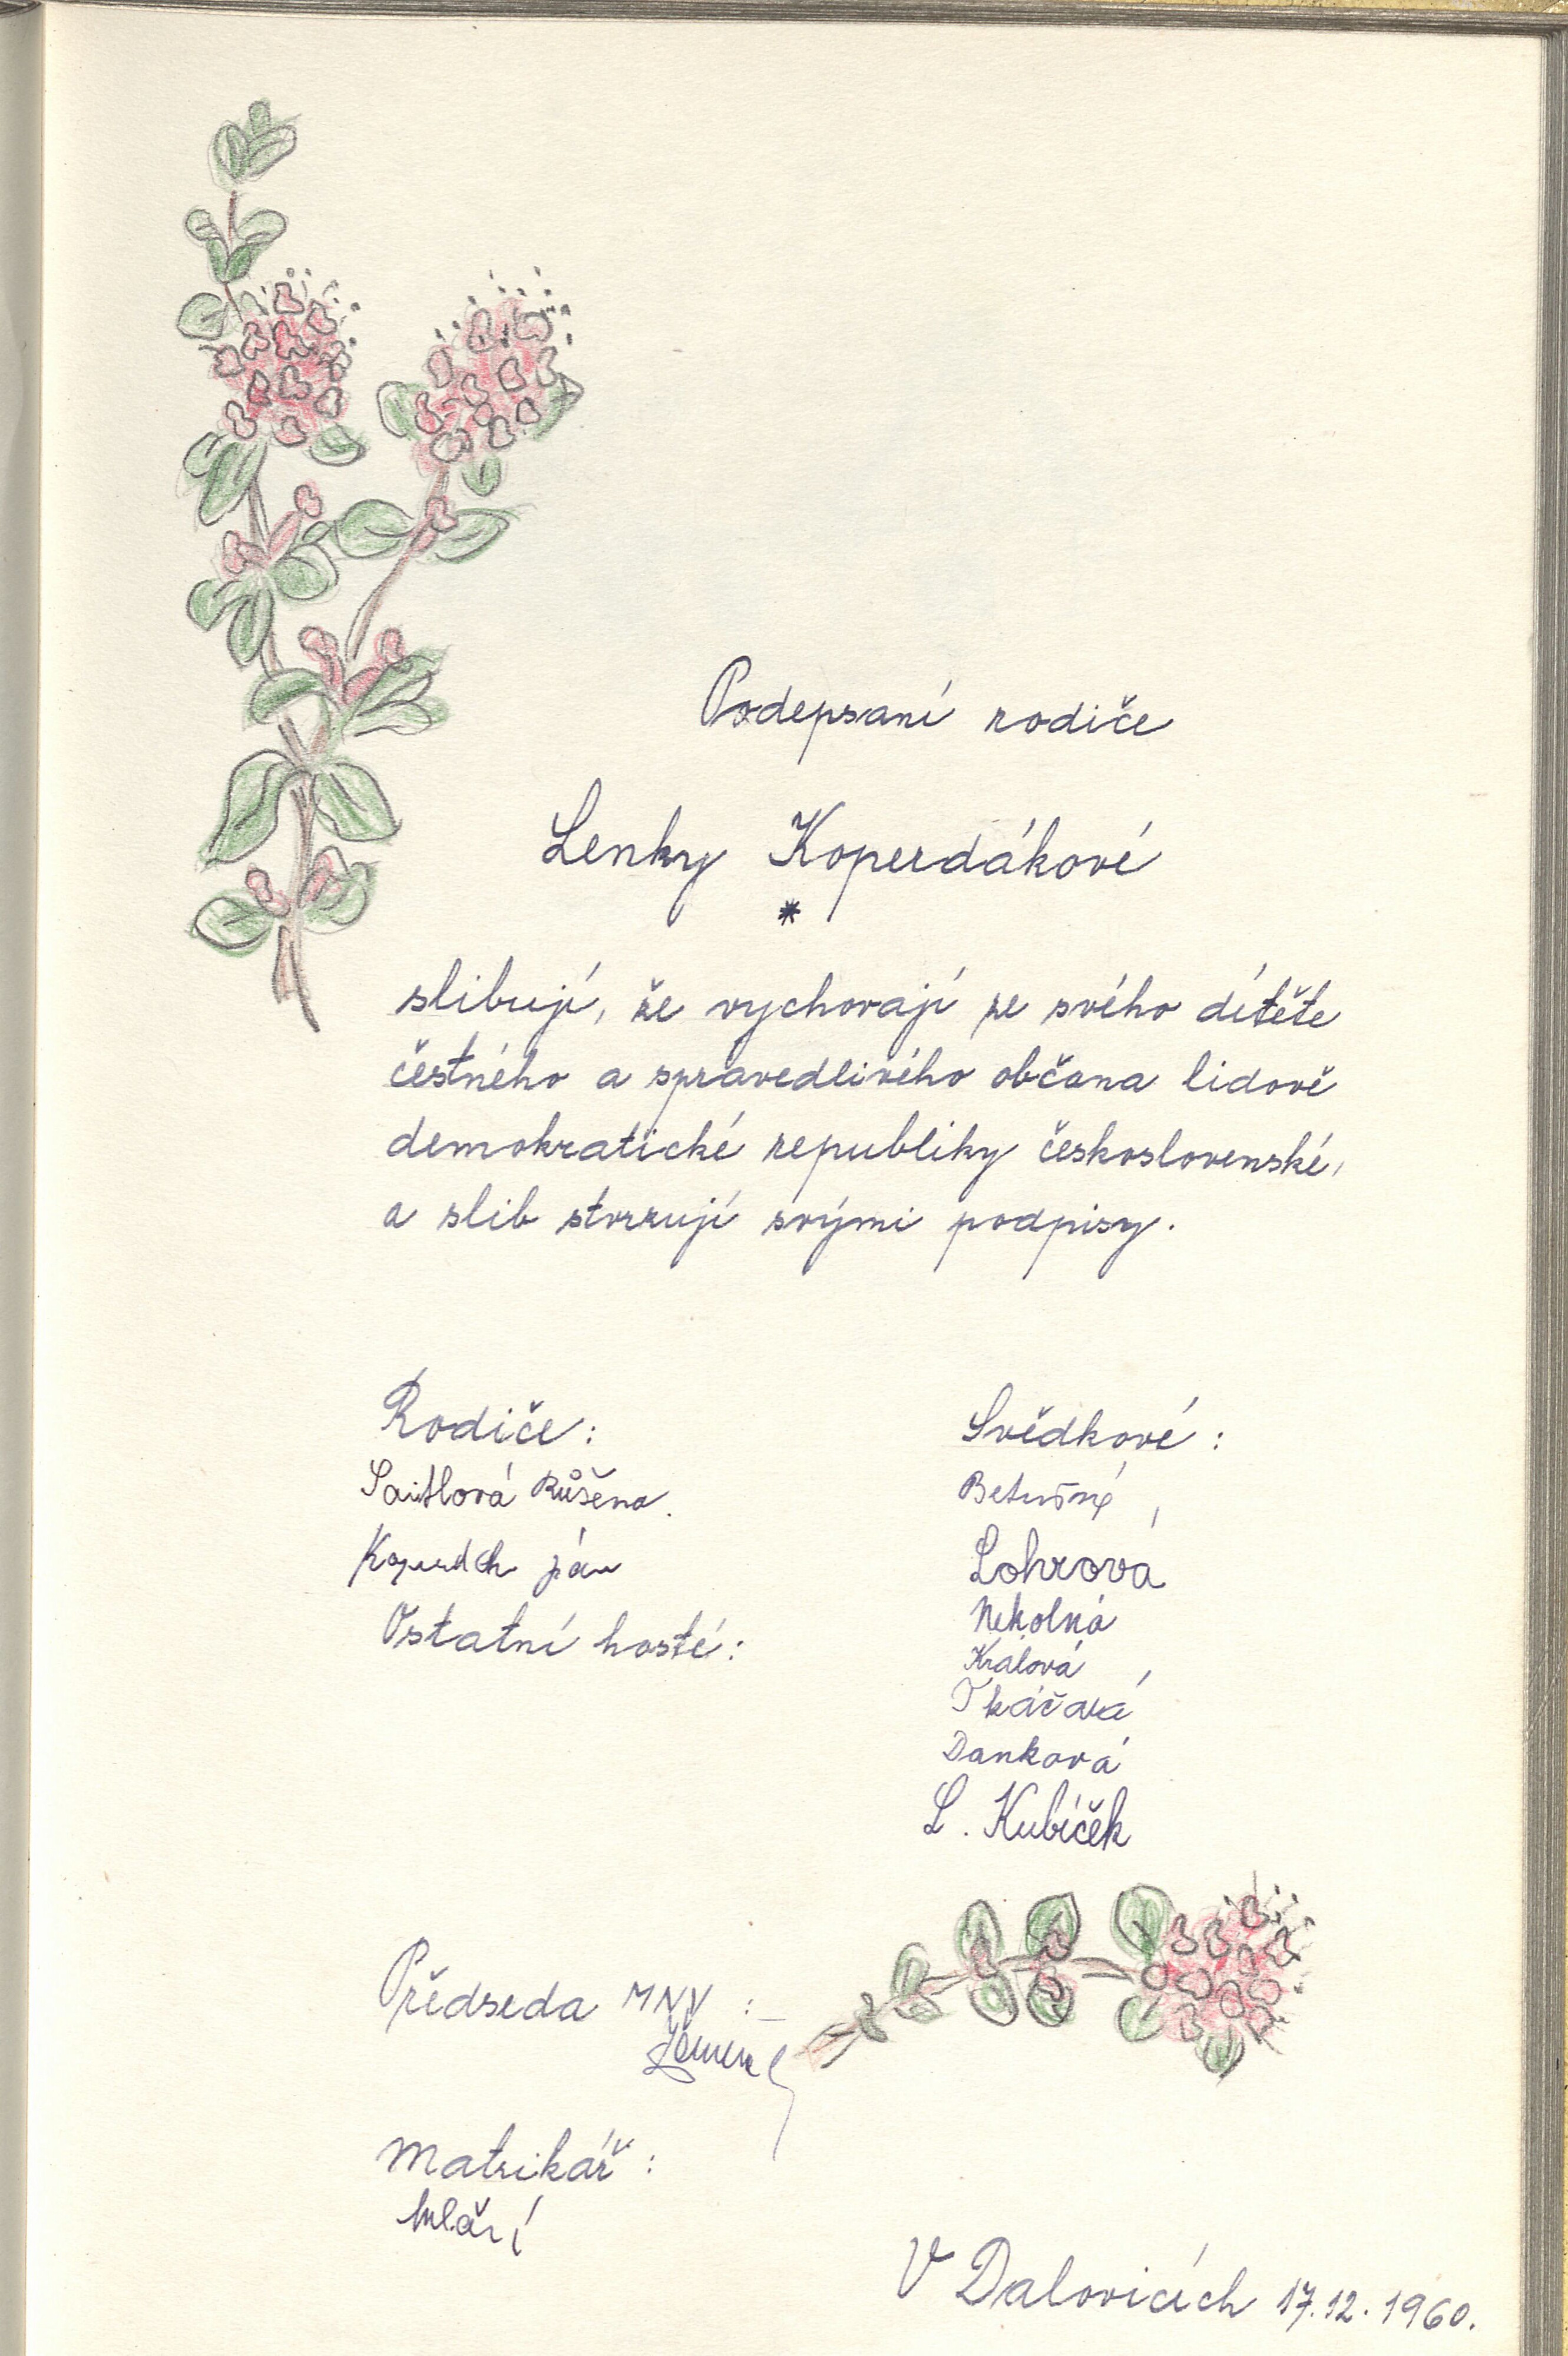 Podepsaní rodiče
Lenky Koperdákové
*
slibují, že vychovají ze svého dítěte
čestného a spravedlivého občana lidově
demokratické republiky československé,
a slib stvrzují svými podpisy.
Rodiče:
Saitlová Růžena.
ján
Ostatní hosté:
Svědkové:
Lohrová
Nekolná
Králová
Tkáčová
Danková
L. Kubíček
Předseda MNV :
Matrikář:
V Dalovicích 17.12.1960.